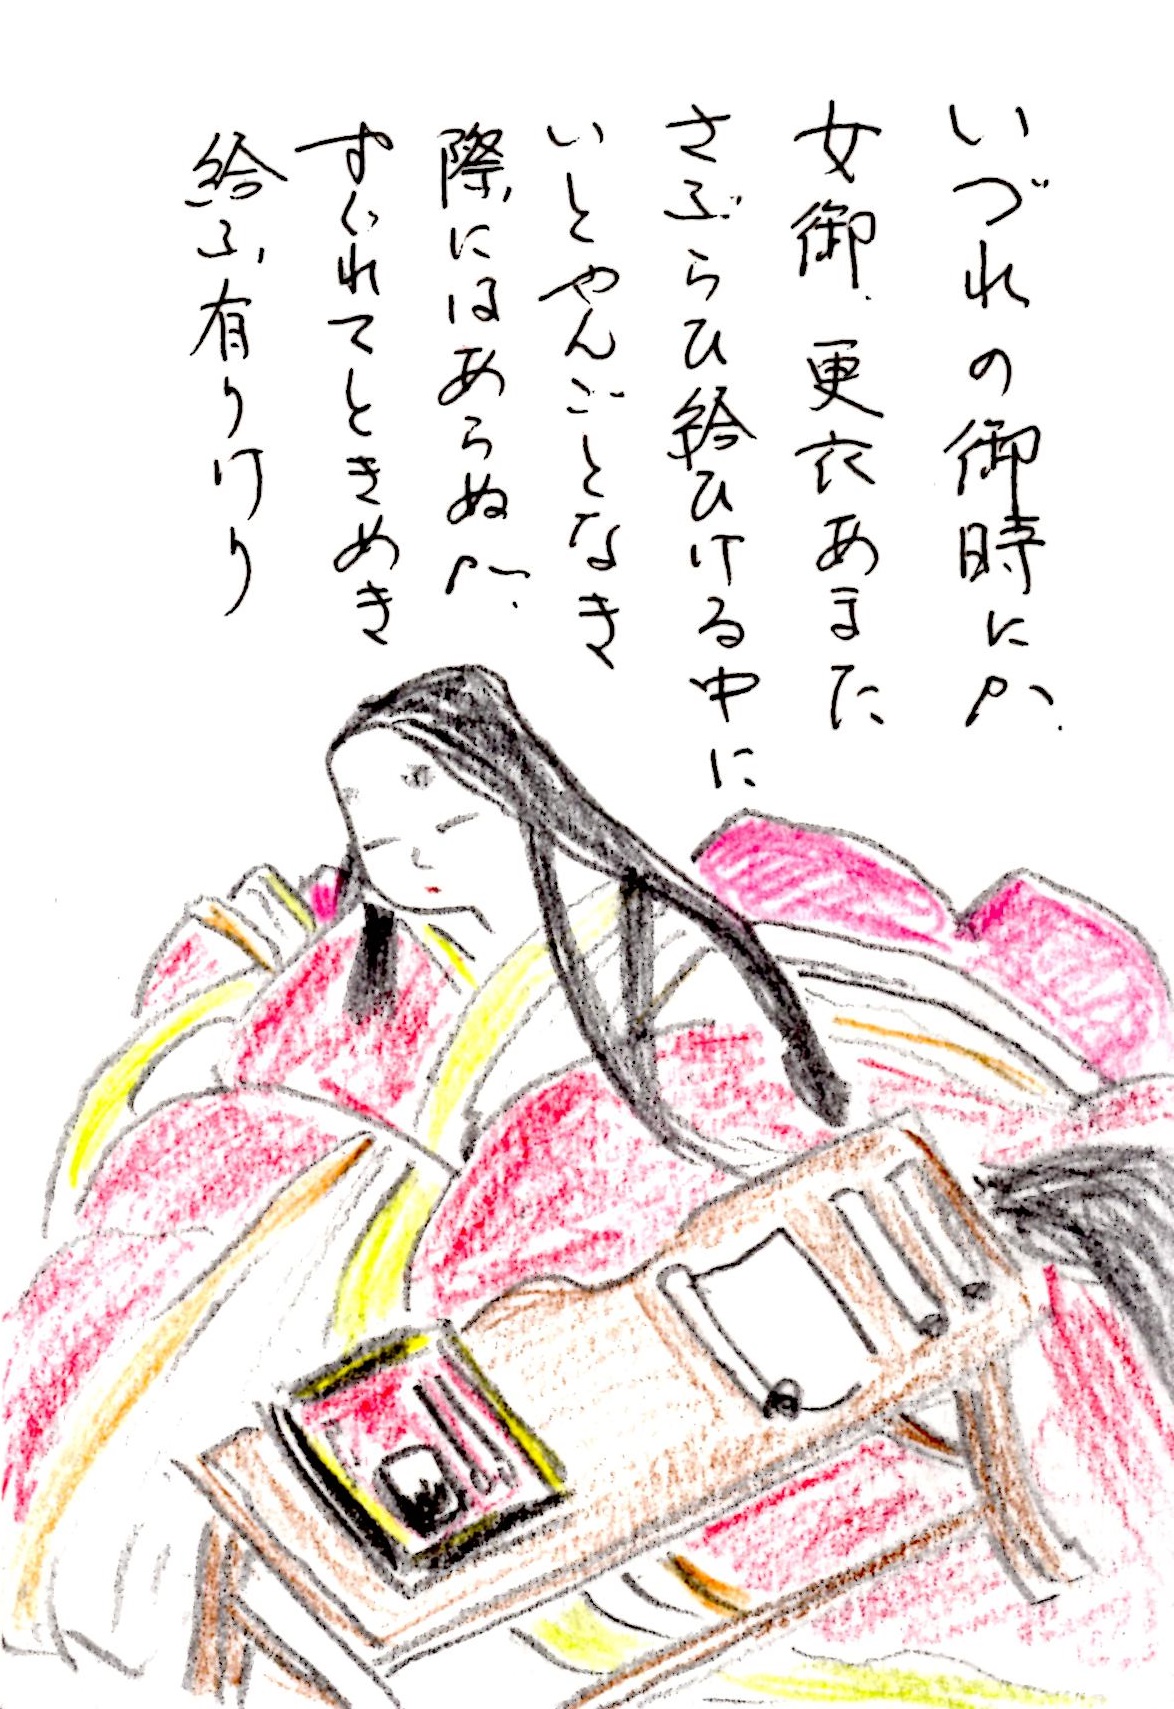 いづれの御時にか、
女御、更衣あまた
さぶらひ給ひける中に
いとやんごとなき
際にはあらぬが、
すぐれてときめき
給ふ有りけり